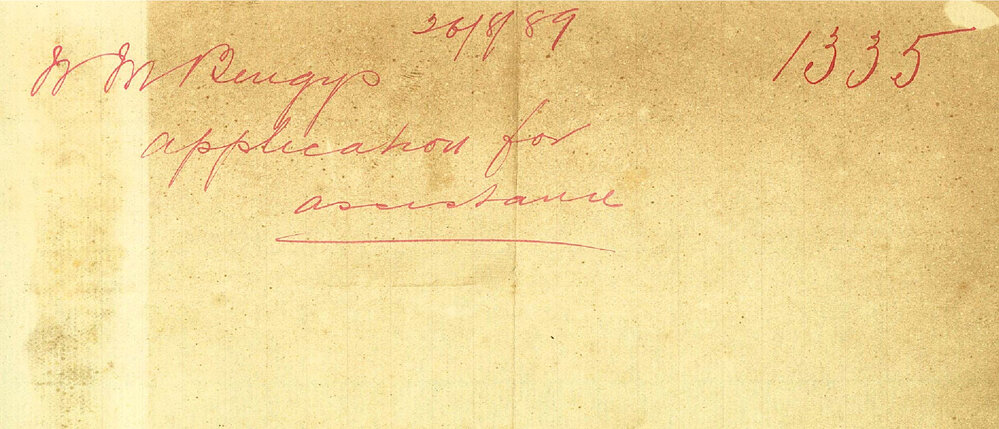 26/8/89
1335
W M Bengys
application for
assistance